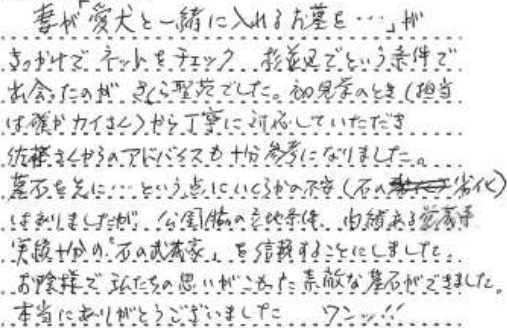 妻が「愛犬と一緒に入れるお墓を…」が
きっかけでネットをチェック 杉並区でという条件で
出会ったのが さくら聖苑でした。初見学のとき(担当
は確かカイさん)から丁寧に対応していただき
佐藤さんからのアドバイスも十分参考になりました。
墓石を先に…という点にいくらかの不安(石の劣化)
はありましたが、公園隣の立地条件、由緒ある
実績十分の「石の武蔵家」を信頼することにしました。
お陰様で 私たちの思いがこもった素敵な墓石ができました。
本当にありがとうございました ワンッ!!